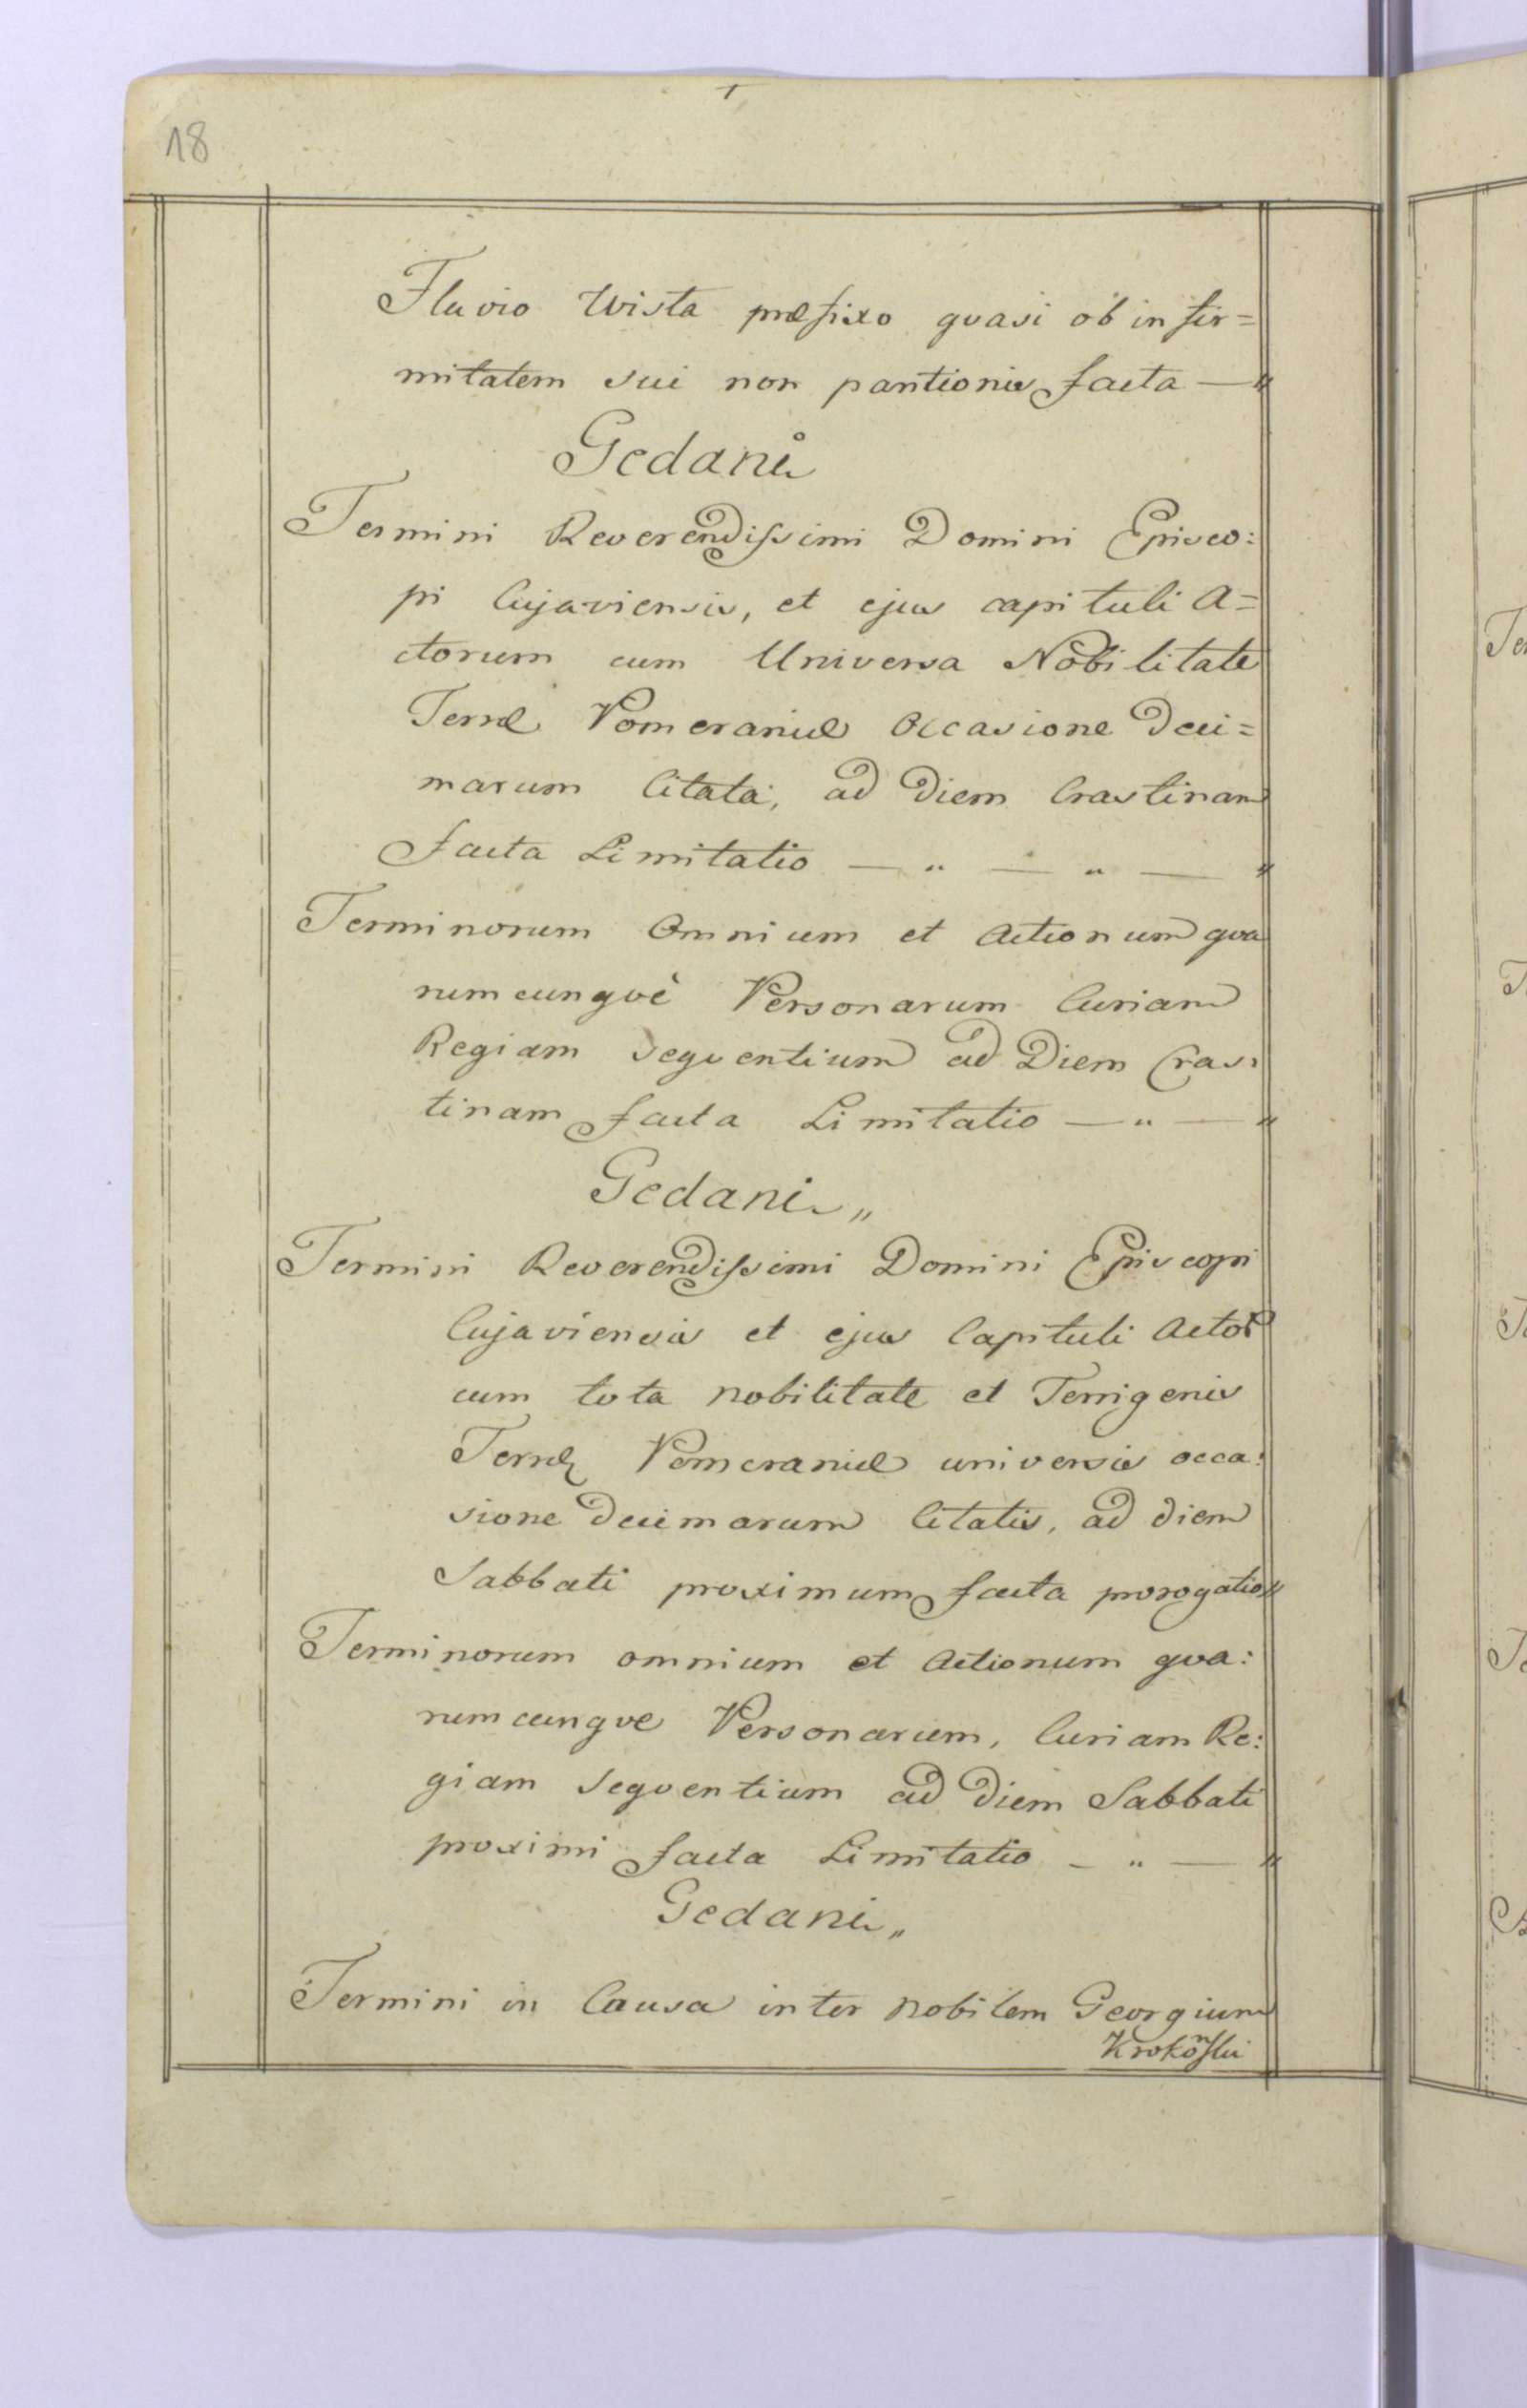 18
Fluvio Wista præfixo qvasi ob infir=
mitatem sui non pantionis facta — "
Gedani
Termini Reverendissimi Domini Episco:
pi Cujaviensis, et ejus capituli A=
ctorum cum Universa Nobilitate
Terræ Pomeraniæ Occasione Deci=
marum Citata, ad Diem Crastinam
facta Limitatio — " — " — "
Terminorum Omnium et Actionum qva
rumcunqvè Personarum Curiam
Regiam Seqventium ad Diem Cras:
tinam facta Limitatio — " — "
Gedani "
Termini Reverendissimi Domini Episcopi
Cujaviensis et ejus Capituli Actor
cum tota nobilitate et Terrigenis
Terræ Pomeraniæ universis occa:
sione Decimarum Citatis, ad diem
Sabbati proximum facta prorogatio "
Terminorum omnium et Actionum qva:
rumcunqve Personarum, Curiam Re:
giam Seqventium ad Diem Sabbati
proximi facta Limitatio — " — "
Gedani "
Termini in Causa inter Nobilem Georgium